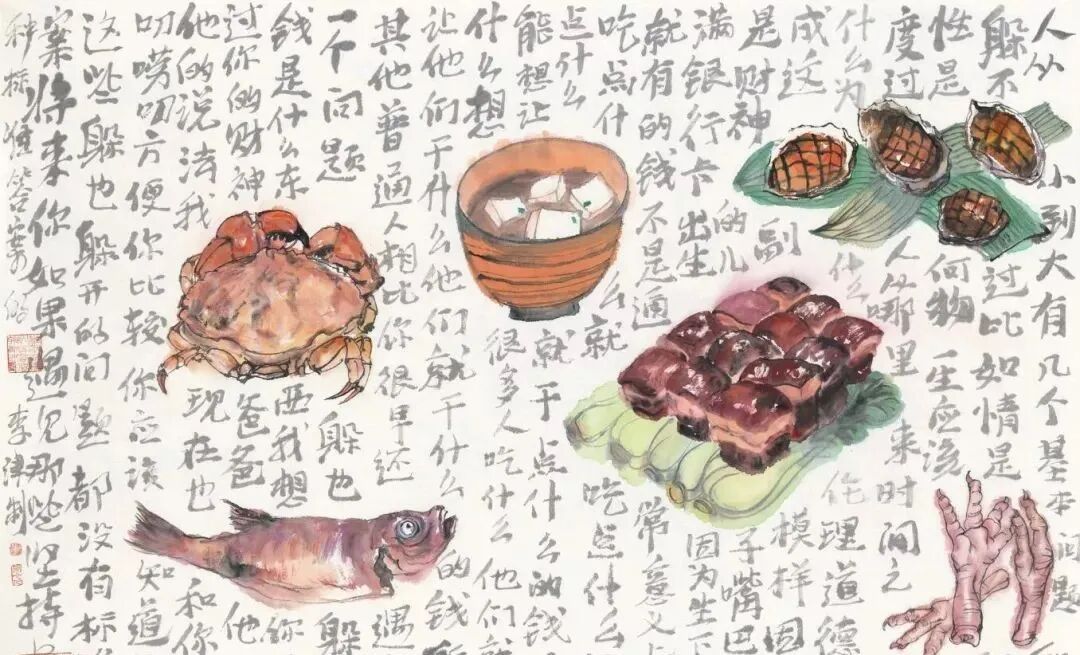 人从小到大有几个基本问题
躲不过比如情是
性是何物 生应该
度过人从哪里来时间之
什么为什么伦理道德
成这副模样因
是财神的儿子嘴巴
满银行卡出生因为生下
就有的钱不是通常意义
吃点什么就吃点什么
点什么就干点什么的钱
能想让
什么想很多人吃什么他们就
让他们干什么他们就干什么的钱
其他普通人相比你很早还遇
一个问题躲也躲
钱是什么东西我想你
过你的财神爸爸他
他的说法我现在也和你
叨唠叨方便你比较你应该知道
这些躲也躲开的问题都没有标
案将来你如果遇见那些坚持
种标准答案的 李津制